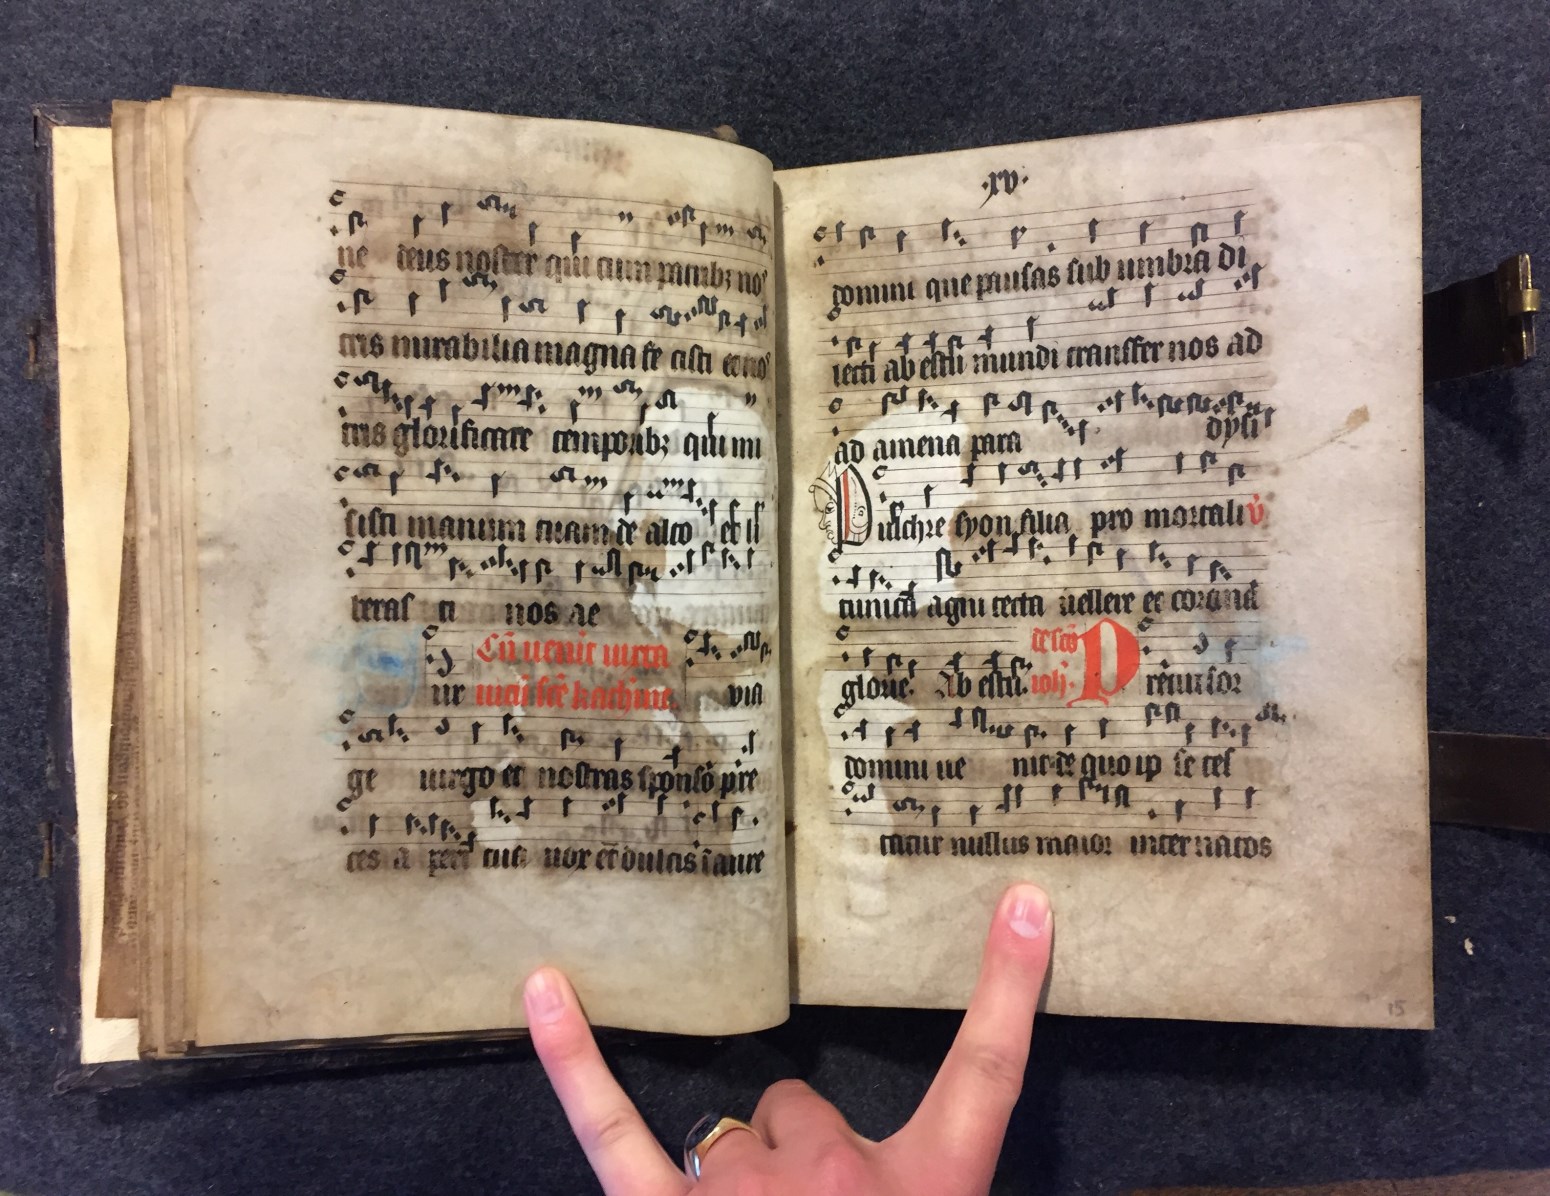 ne deus noster qui cum patribꝫ nos
tris mirabilia magna fecisti et nos
tris glorificare temporibꝫ qui mi
sisti manum tuam de alto et li
berasti nos ae
Cū uenit iuxta
ue
via
ge uirgo et nostras sponsō pre
ces a nox et dulcis
·xv·
domini que pausas sub umbra di
lecti ab estu mundi transfer nos ad
ad amena para dysi
Pulchre syon filia pro mortali v̇
tunica agni tecta uellere et corona
glorie. Ab estu. de sc̄o
ioh̄. Precursor
domini ue nit de quo ip se tes
tatur nullus maior inter natos
15